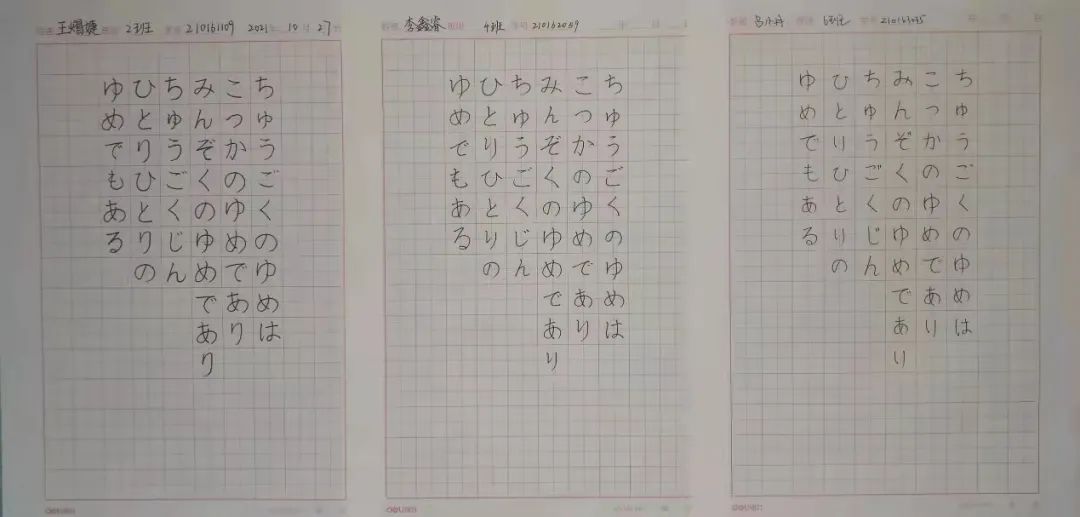 2班 学号 210161109 2021年10月27日
ちゅうごくのゆめは
こっかのゆめであり
みんぞくのゆめであり
ちゅうごくじん
ひとりひとりの
ゆめでもある
李鑫睿 班级 4班 学号 210162059 年 月
ちゅうごくのゆめは
こつかのゆめであり
みんぞくのゆめであり
ちゅうごくじん
ひとりひとりの
ゆめでもある
6班 学号 210163035 年 月 日
ちゅうごくのゆめは
こっかのゆめであり
みんぞくのゆめであり
ちゅうごくじん
ひとりひとりの
ゆめでもある